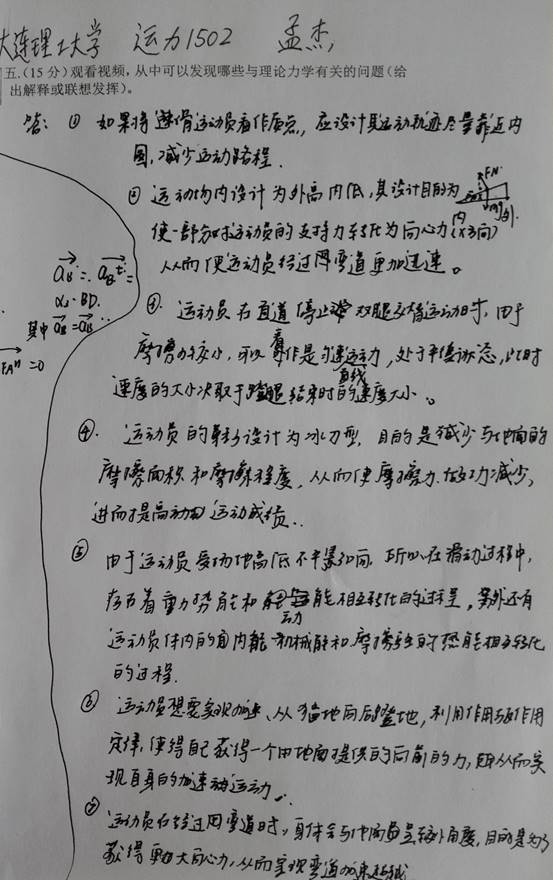 大连理工大学 运力1502 孟杰
五.(15分)观看视频,从中可以发现哪些与理论力学有关的问题(给
出解释或联想发挥)。
答: ① 如果将 运动员看作质点, 应设计其运动轨迹尽量靠近内
圈,减少运动路程.
② 运动场内设计为外高内低,其设计目的为
使一部分对运动员的支持力转化为向心力(x方向)
从而使运动员经过 弯道更加迅速。
④. 运动员在直道停止 双腿交替运动时,由于
摩擦力较小,可以看作是匀速直线运动,处于平衡状态,此时
速度的大小决取于蹬腿结束时的速度大小。
④. 运动员的鞋设计为冰刀型, 目的是减少与地面的
摩擦面积和摩擦程度, 从而使摩擦力做功减少,
进而提高 运动成绩..
⑤ 由于运动员 场地高低不平 , 所以在滑动过程中,
存在着重力势能和动能相互转化的过程, 另外还有
运动员体内的 内能 机械能和摩擦 的热能相互转化
的过程.
⑥ 运动员想要实现加速、从 地向后蹬地, 利用作用与反作用
定律, 使得自己获得一个由地面提供的向前的力, 从而实
现自身的加速 运动.
⑦ 运动员在经过 弯道时, 身体会与 面呈 角度, 目的是为了
获得更大向心力, 从而实现弯道加速